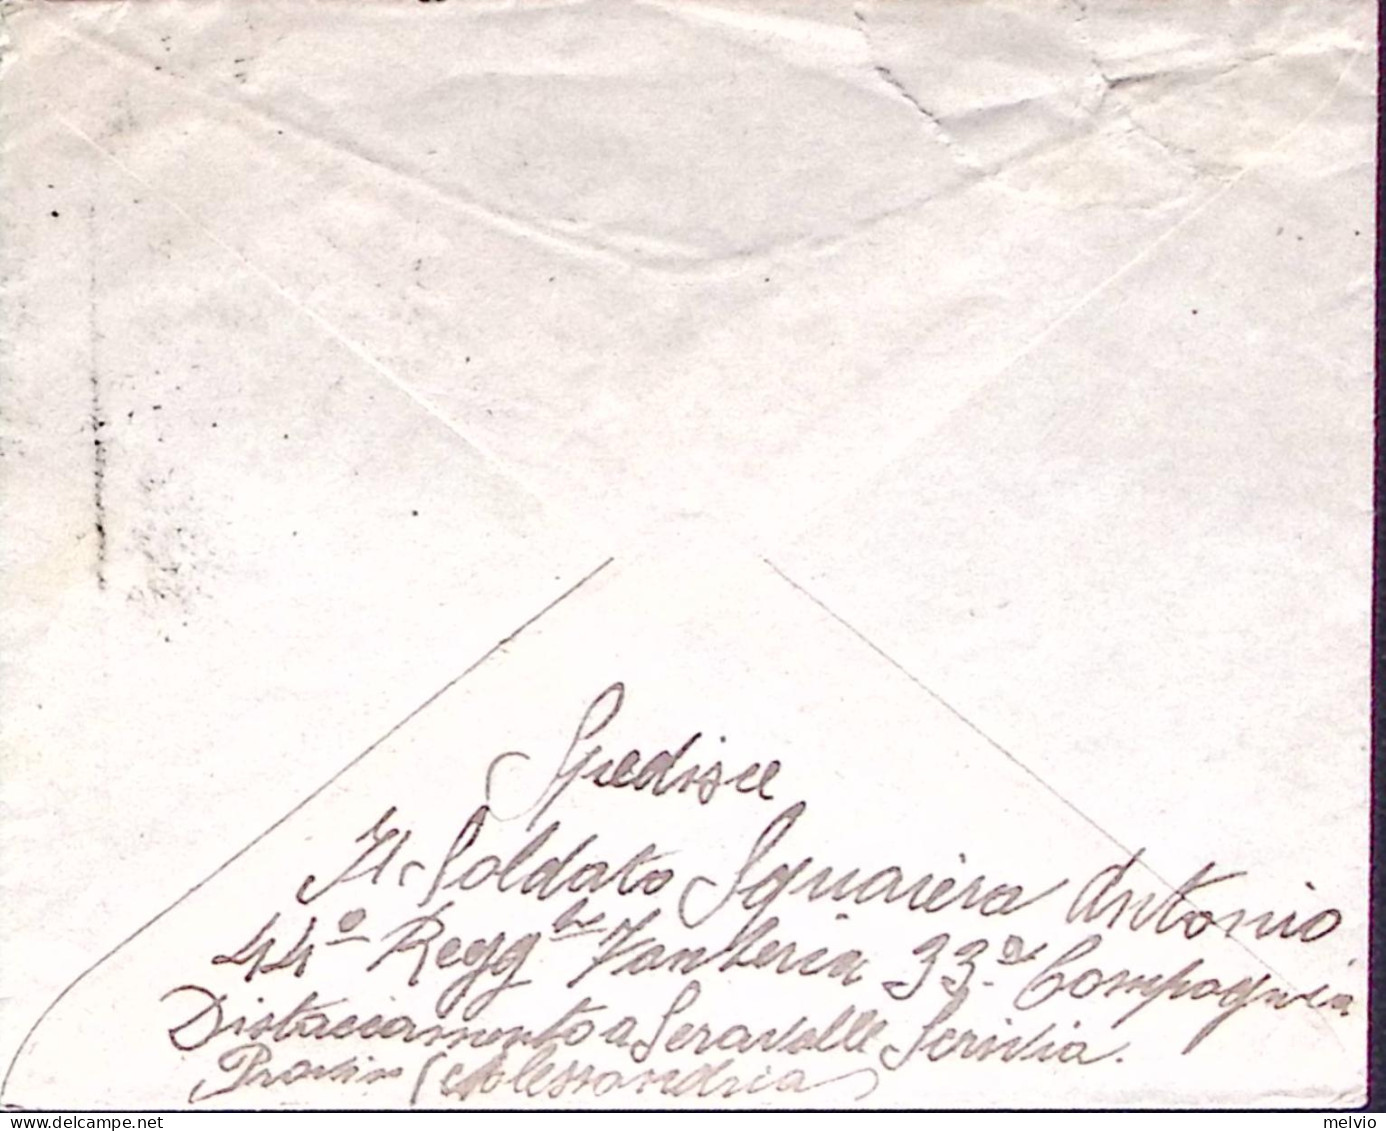 Spedisce
Il Soldato Squaiera Antonio
44º Regg.to Fanteria 33ª Compagnia
Distaccamento a Seravalle Scrivia.
Provin (Alessandria)
melvio